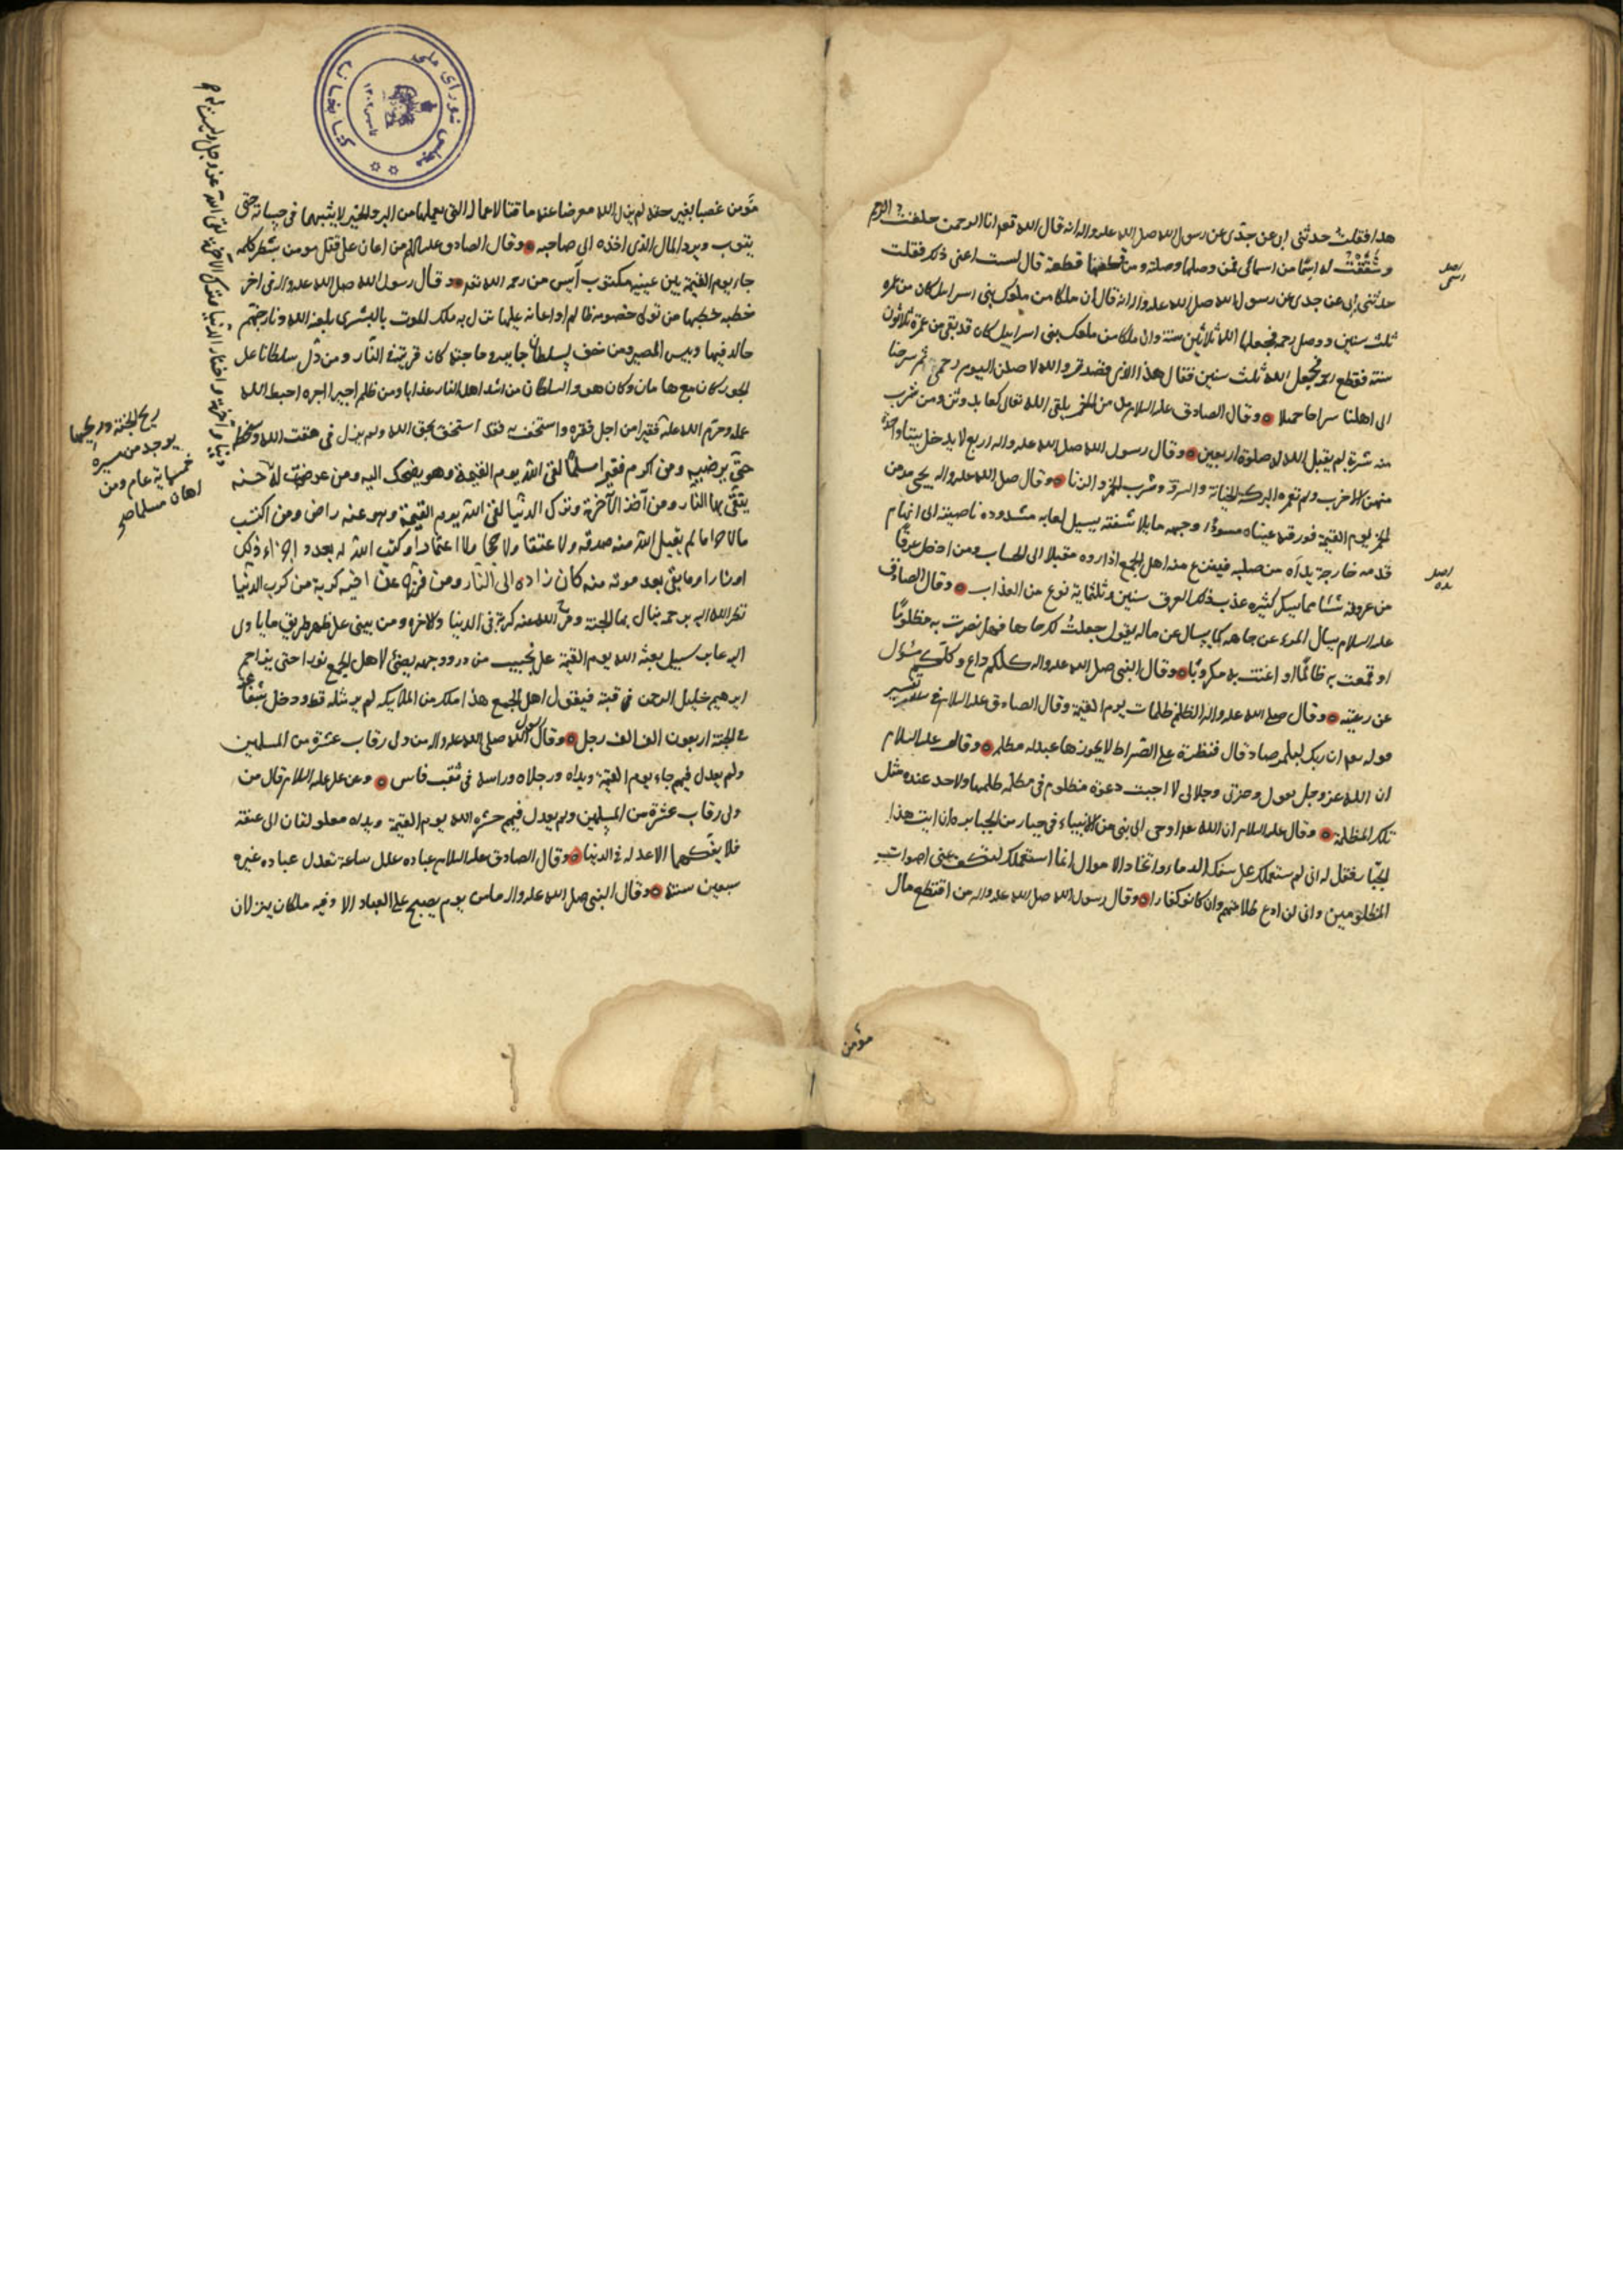 هذا فقلت حدثني ابي عن جدي عن رسول الله صلى الله عليه واله انه قال الله تعالى انا الرحمن خلقت الرحم
وشققت له اسما من اسمائي فمن وصلها وصلته ومن قطعها قطعته قال لست اعني ذلك فقلت
حدثني ابي عن جدي عن رسول الله صلى الله عليه واله انه قال ان ملكا من ملوك بني اسرائيل كان من عمره
ثلث سنين ووصل رحمه فجعلها الله ثلاثين سنة وان ملكا من ملوك بني اسراييل كان قد بقي من عمره ثلاثون
سنة فقطع رحمه فجعل الله ثلث سنين فقال هذا الذي قصدته والله لاصلن اليوم رحمي ثم سرحنا
الى اهلنا سراحا جميلا وقال الصادق عليه السلام مدمن الخمر يلقى الله تعالى كعابد وثن ومن شرب
منه شربة لم يقبل الله له صلوة اربعين وقال رسول الله صلى الله عليه واله اربع لا يدخل بيتا واحدة
منهن الا خرب ولم تعمره البركة الخيانة والسرقة وشرب الخمر والزنا وقال صلى الله عليه واله يجيء مدمن
الخمر يوم القيمة مزرقة عيناه مسودا وجهه مايلا شفته يسيل لعابه مشدوده ناصيته الى ابهام
قدمه خارجة يداه من صلبه فيفزع منه اهل الجمع اذا راوه مقبلا الى الحساب ومن ادخل عرقا
من عروقه شيئا مما يسكر كثيره عذب ذلك العرق ستين وثلثماية نوع من العذاب وقال الصادق
عليه السلام يسال المرء عن جاهه كما يسال عن ماله يقول جعلت لك جاها فهل نصرت به مظلوما
او قمعت به ظالما او اغثت به مكروبا وقال النبي صلى الله عليه واله كلكم داع وكلكم مسؤل
عن رعيته وقال صلى الله عليه واله الظلم ظلمات يوم القيمة وقال الصادق عليه السلام في تفسير
قوله تعالى ان ربك لبالمرصاد قال قنطرة على الصراط لا يجوزها عبد له مظلمة وقال عليه السلام
ان الله عز وجل يقول وعزتي وجلالي لا اجبت دعوة مظلوم في مظلمة ظلمها ولاحد عنده مثل
تلك المظلمة وقال عليه السلام ان الله تعالى اوحى الى نبي من الانبياء في جبار من الجبابرة ان ايت هذا
الجبار فقل له اني لم استعملك على سفك الدماء واتخاذ الاموال انما استعملتك لتكف عني اصوات
المظلومين واني لن ادع ظلامتهم وان كانوا كفارا وقال رسول الله صلى الله عليه واله من اقتطع مال
مؤمن
مؤمن غصبا بغير حقه لم يزل الله معرضا عنه ماقتا لاعماله التي يعملها من البر والخير لا يثبتها في حسناته حتى
يتوب ويرد المال الذي اخذه الى صاحبه وقال الصادق عليه السلام من اعان على قتل مومن بشطر كلمة
جاء يوم القيمة بين عينيه مكتوب آيس من رحمة الله تعم وقال رسول الله صلى الله عليه واله في اخر
خطبه خطبها من تولى خصومة ظالم او اعانه عليها نزل به ملك الموت بالبشرى بلعنة الله ونار جهنم
خالدا فيها وبيس المصير ومن خف لسلطان جاير في حاجة كان قرينه في النار ومن دل سلطانا على
الجور كان مع هامان وكان هو والسلطان من اشد اهل النار عذابا ومن ظلم اجيرا اجره احبط الله
عمله وحرم الله عليه
فقيرا من اجل فقره واستخف به فقد استخف بحق الله ولم يزل في مقت الله وسخطه
حتى يرضيه ومن اكرم فقيرا مسلما لقي الله يوم القيمة وهو يضحك اليه ومن عرضت له
يتقي بها النار ومن آخذ الآخرة وترك الدنيا لقي الله يوم القيمة وهو عنه راض ومن اكتسب
مالا حراما لم يقبل الله منه صدقة ولا عتقا ولا حجا ولا اعتمارا وكتب الله له بعدد اجزاء ذلك
اوزارا وما بقي بعد موته منه كان زاده الى النار ومن فرج عن اخيه كربة من كرب الدنيا
نظر الله اليه برحمة ينال بها الجنة وفرج الله عنه كربه في الدنيا والاخرة ومن بنى على ظهر طريق ماياوى
اليه عابر سبيل بعثه الله يوم القيمة على نجيب من در ووجهه يضئ لاهل الجمع نورا حتى يزاحم
ابرهيم خليل الرحمن في قبته فيقول اهل الجمع هذا ملك من الملايكه لم ير مثله قط ودخل بشفاعته
في الجنة اربعون الف الف رجل وقال رسول الله صلى الله عليه واله من ولى رقاب عشرة من المسلمين
ولم يعدل فيهم جاء يوم القيمة ويداه ورجلاه وراسه في ثقب فاس وعن علي عليه السلام قال من
ولي رقاب عشرة من المسلمين ولم يعدل فيهم حشره الله يوم القيمة ويداه مغلولتان الى عنقه
فلا يفكهما الا عدله في الدنيا وقال الصادق عليه السلام عباده عدل ساعة تعدل عبادة غيره
سبعين سنة وقال النبي صلى الله عليه واله ما من يوم يصبح على العباد الا وفيه ملكان ينزلان
ريح الجنة وريحها
يوجد من مسيرة
خمسماية عام ومن
اهان مسلما صح